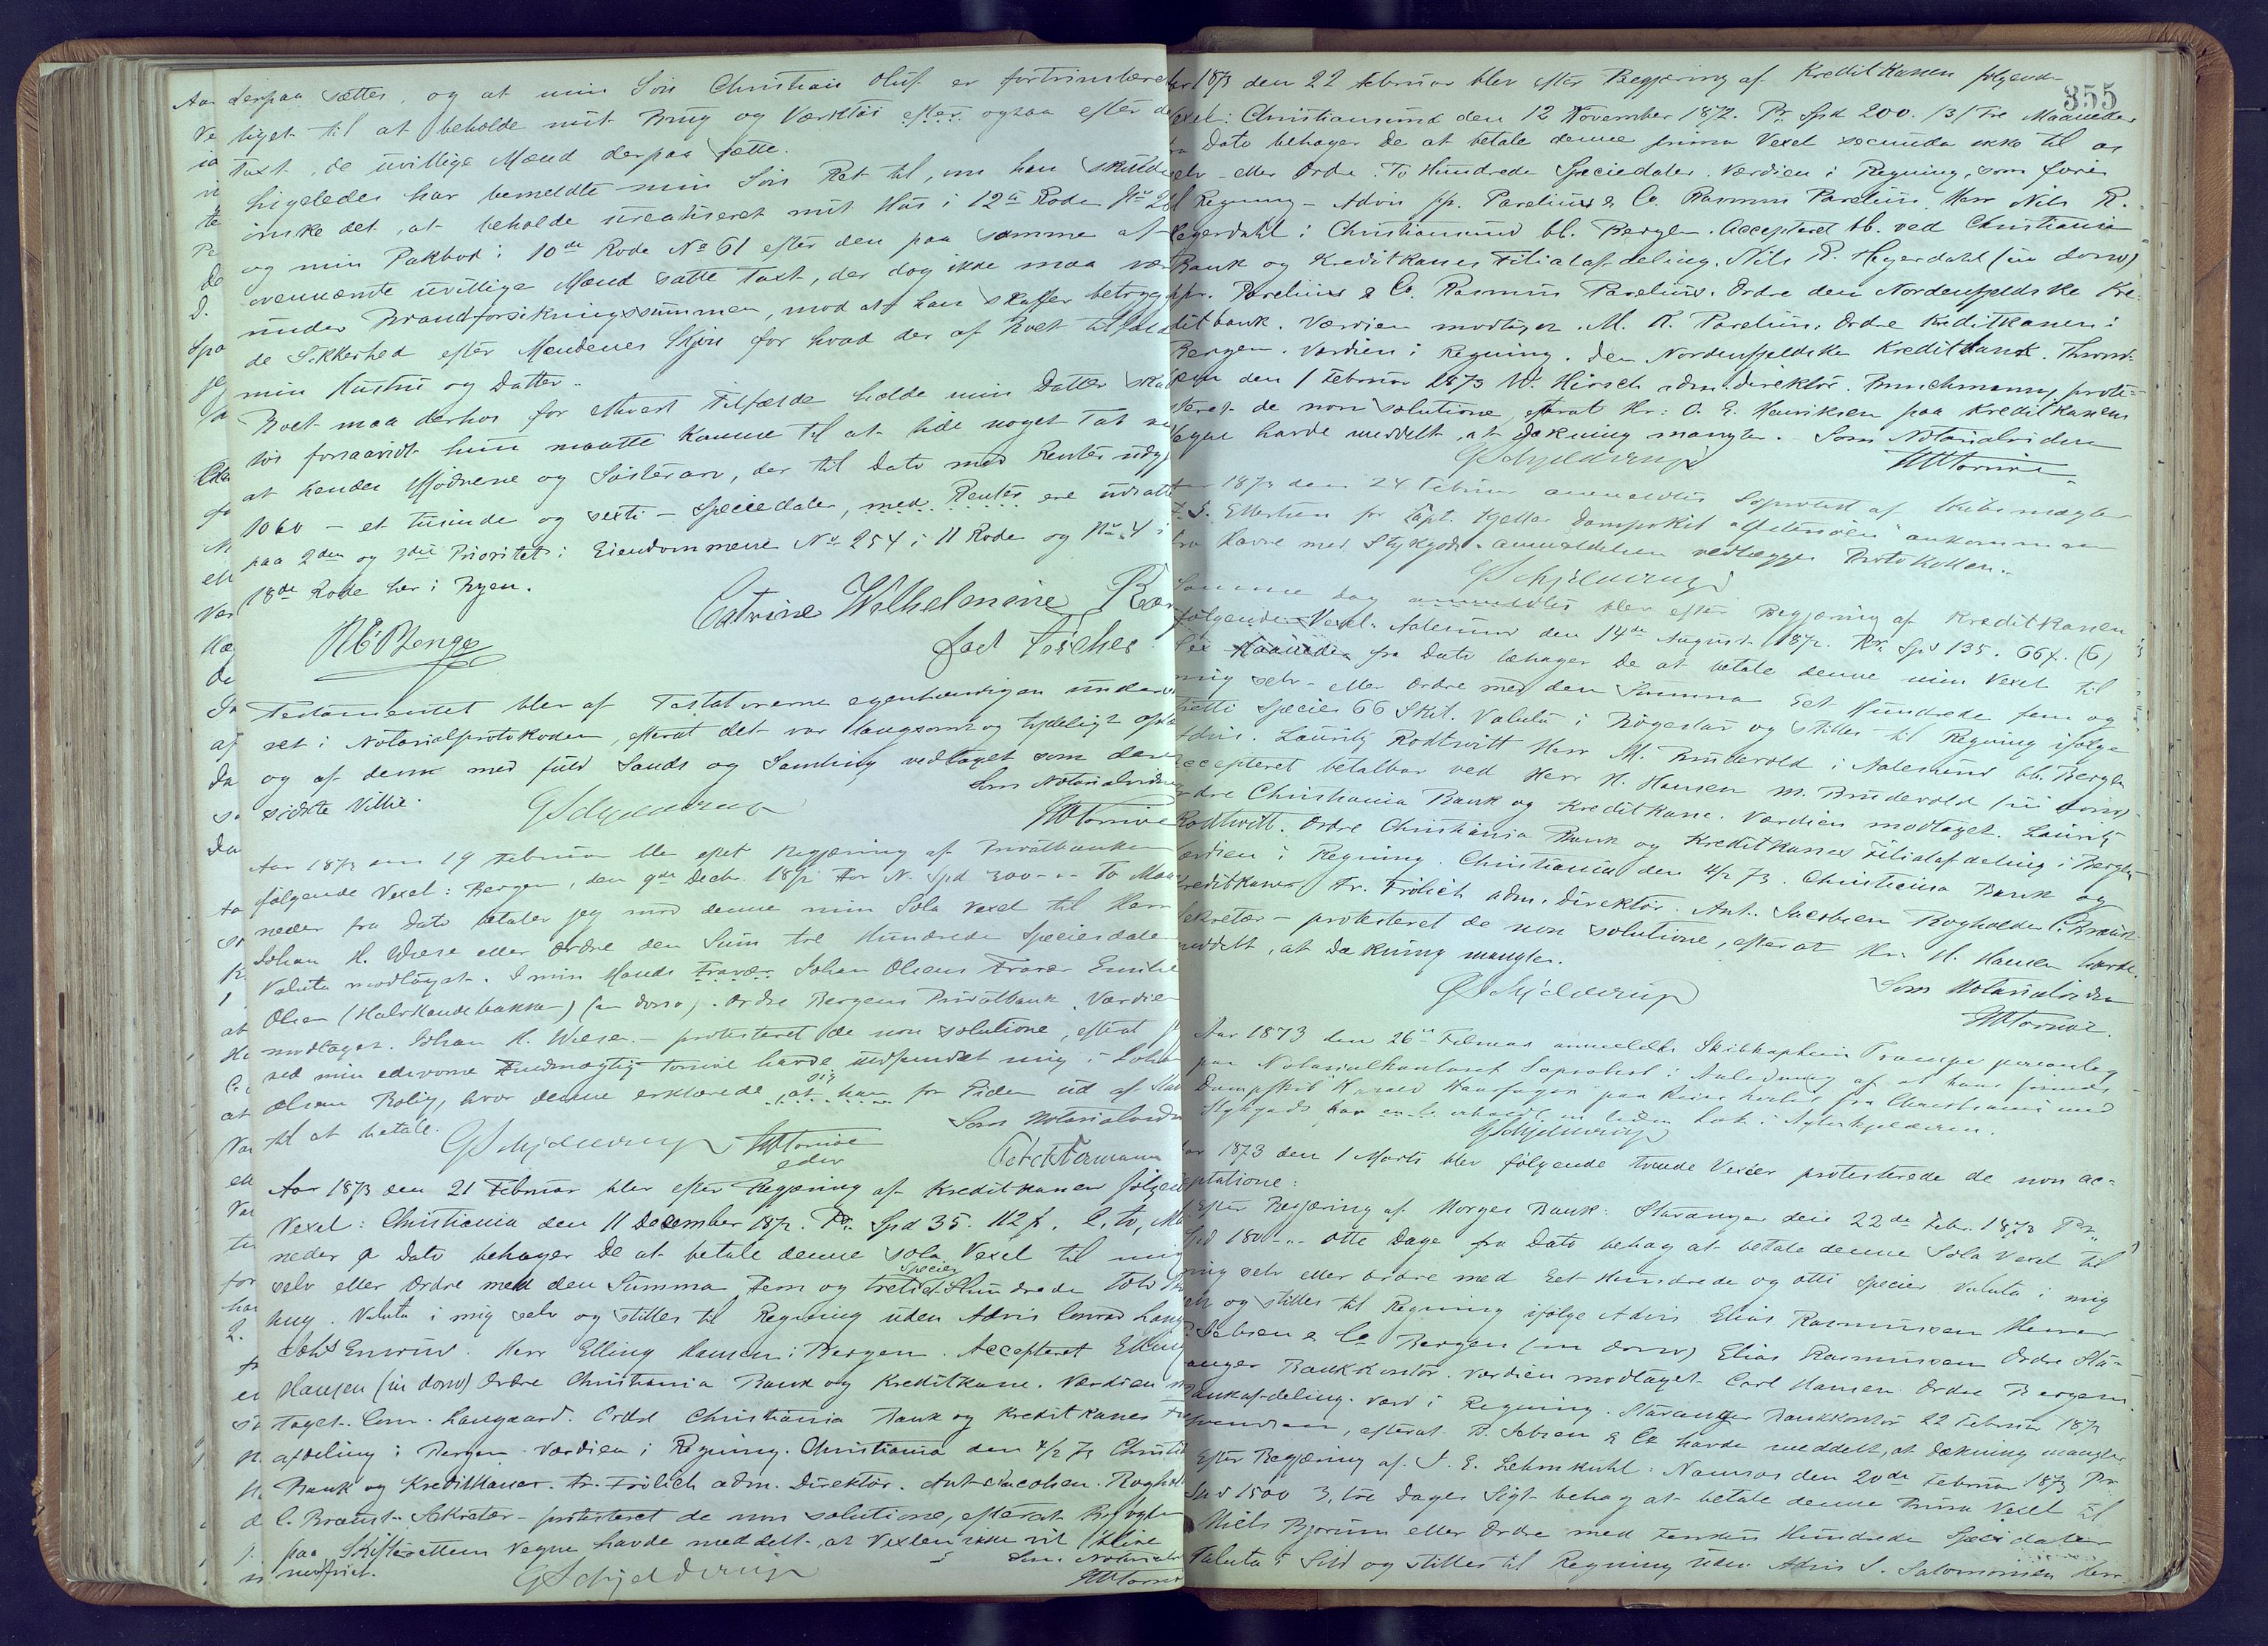 derpaa sættes, og at min Søn Christian Oluf er fortrinsberet
tiget til at beholde mit Brug og Værktøi efter ogsaa efter de
Taxt, de uvillige Mænd derpaa sætte.
Ligeledes har bemeldte min Søn Ret til, om han skulde
ønske det, at beholde urealiseret mit Hus i 12te Rode No 2
og min Pakbod i 10de Rode No 61 efter den paa samme af
ovennævnte uvillige Mænd satte Taxt, der dog ikke maa vær
under Brandforsikringssummen, mod at han skaffer betryg
de Sikkerhed efter Mændenes Skjøn for hvad der af Boet tilfald
min Hustru og Datter.
Boet maa derhos for ethvert Tilfælde holde min Datter ska
løs forsaavidt hun maatte komme til at lide noget Tab ve
at hendes Mødrene og Søsterarv, der til Dato med Renter udgj
1060 - et tusinde og sexti - Speciedaler, med Renter ere udsatte
paa 2den og 3die Prioritet i Eiendommene No 254 i 11 Rode og No 4 i
18de Rode her i Byen.
Catrine Wilhelmine
Testamentet blev af Testatorerne egenhændigen under
ret i Notarialprotokollen, efterat det var langsomt og tydeligt oplæ
og af dem med fuld Sands og Samling vedtaget som dere
sidste Villie.
Som Notarialvidne
G Schjelderup
Aar 1873 den 19 Februar blev efter Begjæring af Privatbanken
følgende Vexel: Bergen, den 9de Decbr. 1872 For N. Spd 300 - - To Maa
neder fra Dato betaler jeg mod denne min Sola Vexel til Herr
Johan H. Wiese eller Ordre den Sum tre Hundrede Speciesdaler
Valuta modtaget. I min Mands Fravær Johan Olsens Fravær Emilie
Olsen (Halvkandebakken) (in dorso). Ordre Bergens Privatbank. Værdien
modtaget. Johan H. Wiese. - protesteret de non solutione, efterat
ved min edsvorne Fuldmægtig Tornøe havde indfundet mig i Johan
Olsens Bolig, hvor denne erklærede, at han for Tiden ud af Stan
til at betale.
Som Notarialvidne
G Schjelderup
Aar 1873 den 21 Februar blev efter Begjæring af Kreditkassen følgen
Vexel: Christiania den 11 December 1872. Pr. Spd 35. 112 ß. 2, to, Maa
neder a Dato behager De at betale denne Sola Vexel til mig
selv eller Ordre med den Summa Fem og treti Species Hundrede Tolv Sk
ing. Valuta i mig selv og stilles til Regning uden Advis Conrad Lang
Herr Elling Hansen i Bergen. Accepteret Elling
Hansen (in dorso) Ordre Christiania Bank og Kreditkasse. Værdien mod
taget. Conr. Langaard. Ordre Christiania Bank og Kreditkasses Fil
afdeling i Bergen Værdien i Regning. Christiania den 4/2 73 Christia
Bank og Kreditkasse. Fr. Frölich adm. Direktør. Ant Jacobsen. Boghol
C. Brandt. Sekretær - protesteret de non solutione, efterat
paa Skifterettens Vegne havde meddelt, at Vexlen ikke vil blive
indfriet.
Som Notarialv
G Schjelderup
355
Aar 1873 den 22 Februar blev efter Begjæring af Kreditkassen følgende
Vexel: Christiansund den 12 November 1872. Pr Spd 200. /3/ Tre Maaneder
fra Dato behager De at betale denne prima Vexel secunda ikke til os
selv eller Ordre. To Hundrede Speciedaler. Værdien i Regning, som føres
i Regning - Advis pp. Parelius & Co. Rasmus Parelius Herr Nils R.
Heyerdahl i Christiansund bb. Bergen. Accepteret bb. ved Christiania
Bank og Kreditkasses Filialafdeling. Nils R. Heyerdahl (in dorso)
ppr. Parelius & Co. Rasmus Parelius. Ordre den Nordenfjeldske Kre-
ditbank. Værdien modtagen. M. R. Parelius. Ordre Kreditkassen i
Bergen. Værdien i Regning. Den Nordenfjeldske Kreditbank. Thrond-
hjem den 1 Februar 1873 W. Hirsch adm. direktør. Buschmann, prote-
steret de non solutione, efterat Hr: O. E. Henriksen paa Kreditkassens
Vegne havde meddelt, at Dækning mangler. Som Notarialvidne
G Schjelderup
Aar 1873 den 24 Februar anmeldtes Søprotest af Skibsmægler
Ellertsen for Capt. Dampskib ankommen
fra Havre med Stykgods. Anmeldelsen vedlægges Protokollen.
G Schjelderup
Samme Dag anmeldtes blev efter Begjæring af Kreditkassen
følgende Vexel: Aalesund den 14de August 1872. Pr. Spd 135. 66 ß. (6)
Sex Maaneder fra Dato behager De at betale denne min Vexel til
mig selv eller Ordre med den Summa Eet Hundrede fem og
tretti Species 66 Skil. Valuta i Bøgestav og stilles til Regning ifølge
Advis. Lauritz Rodtwitt Herr M. Brudevold i Aalesund bb. Bergen
Accepteret betalbar ved Herr H. Hansen M. Brudevold (in dorso)
Ordre Christiania Bank og Kreditkasse. Værdien modtaget. Lauritz
Rodtwitt. Ordre Christiania Bank og Kreditkasses Filialafdeling i Bergen
Værdien i Regning. Christiania den 4/2 73. Christiania Bank og
Kreditkasse Fr. Frölich adm. Direktør. Ant. Jacobsen Bogholder C. Brandt
Sekretær - protesteret de non solutione, efterat Hr. H. Hansen havde
meddelt, at Dækning mangler.
Som Notarialvidne
G Schjelderup
Aar 1873 den 26de Februar anmeldte Skibskaptein Trampe personlig
paa Notarialkontoret Søprotest i Anledning af at hans førende
Dampskib "Harald Haarfager" paa Reise hertil fra Christiania med
Stykgods har
G Schjelderup
Aar 1873 den 1 Marts blev følgende tvende Vexler protesterede de non ac-
ceptatione:
Efter Begjæring af Norges Bank: Stavanger den 22de Febr. 1873 Pr.
Spd 180 - - Otte Dage fra Dato behag at betale denne Sola Vexel til
mig selv eller Ordre med Eet Hundrede og otti Species Valuta i mig
selv og stilles til Regning ifølge Advis Elias Rasmussen Herrer
P. Jebsen & Co Bergen (in dorso) Elias Rasmussen Ordre Sta-
vanger Bankkontor. Værdien modtaget Carl Hansen Ordre Bergens
Bankafdeling. Værd i Regning. Stavanger Bankkontor 22 Februar 1873
efterat P. Jebsen & Co havde meddelt, at Dækning mangler.
Efter Begjæring af J. E. Lehmkuhl: Namsos den 20de Februar 1873 Pr
Spd 1500 3, tre Dages Sigt behag at betale denne Prima Vexel til
Niels Bjørum eller Ordre med Femten Hundrede Speciedaler
Valuta i Sild og stilles til Regning uden Advis S. Salomonsen Herr